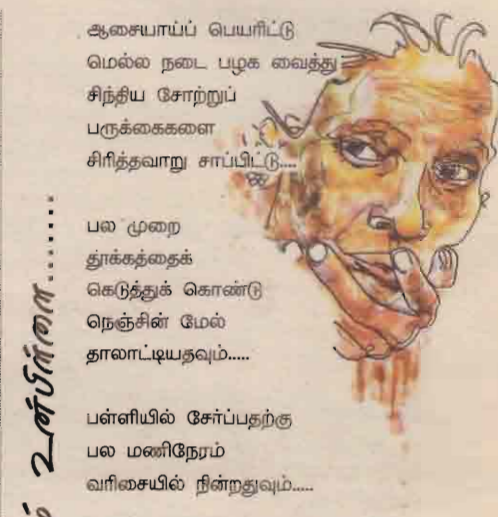 ஆசையாய்ப் பெயரிட்டு
மெல்ல நடை பழக வைத்து
சிந்திய சோற்றுப்
பருக்கைகளை
சிரித்தவாறு சாப்பிட்டு....
பல முறை
தூக்கத்தைக்
கெடுத்துக் கொண்டு
நெஞ்சின் மேல்
தாலாட்டியதவும்.....
பள்ளியில் சேர்ப்பதற்கு
பல மணிநேரம்
வரிசையில் நின்றதுவும்.....